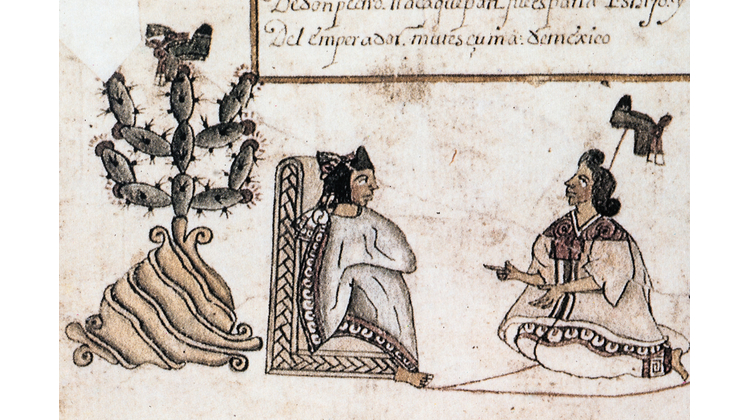 De don pedro. tlacaguepan. fue españa Es hijo. y
Del emperador. mutescuma: de mexico